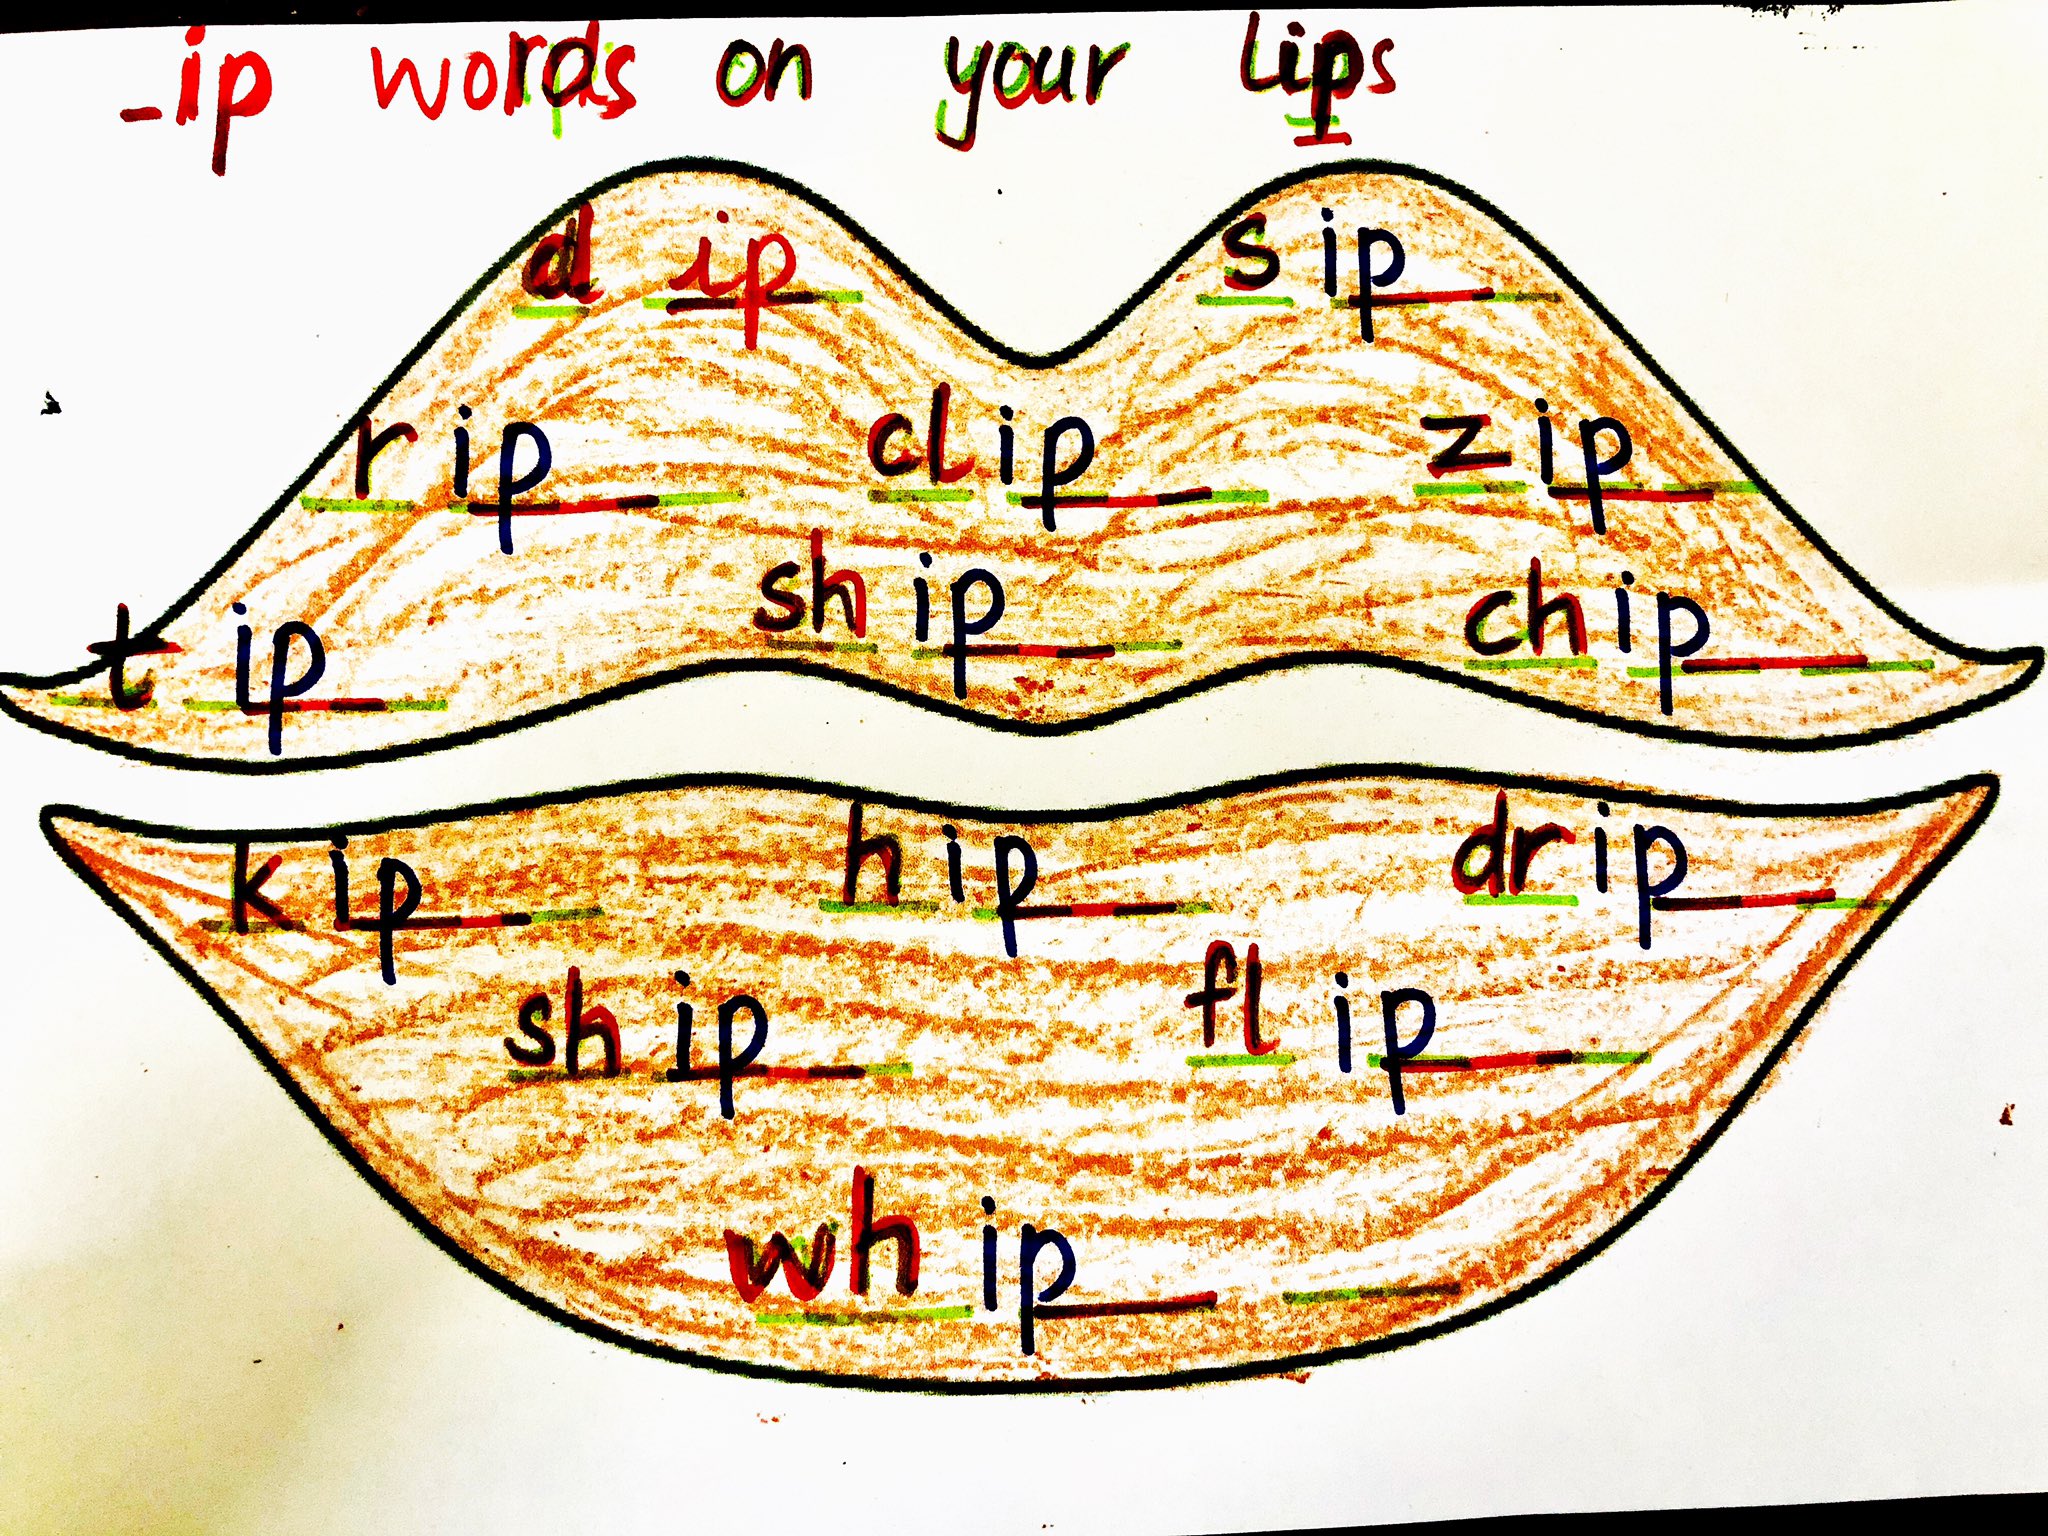 _ip words on your lips
d ip s ip
r ip cl ip z ip
t ip sh ip ch ip
k ip h ip dr ip
sh ip fl ip
wh ip